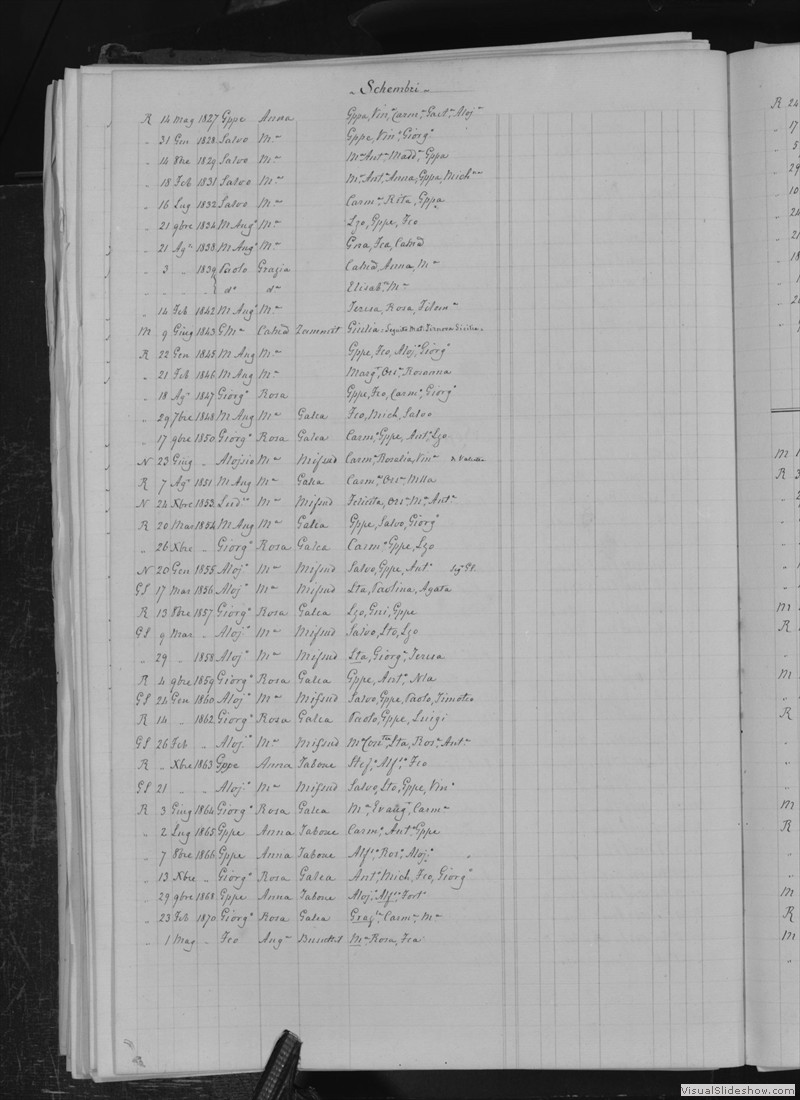 Schembri
R 14 Mag 1827 Gppe Anna Gppa, Vin.ᵃ Carm.ᵃ Gaet.ᵃ Aloj.ᵃ
" 31 Gen 1828 Salvo M.ᵃ Gppe, Vin.ᵒ Giorg.ᵒ
" 14 8bre 1829 Salvo M.ᵃ M.ᵃ Ant.ᵃ Madd.ᵃ Gppa
" 18 Feb 1831 Salvo M.ᵃ M.ᵃ Ant.ᵃ Anna, Gppa, Mich.ᵃ
" 16 Lug 1832 Salvo M.ᵃ Carm.ᵃ Rita, Gppa
" 21 9bre 1834 M Ang.ᵒ M.ᵃ Lzo, Gppe, Fco
" 21 Ag.ᵒ 1838 M Ang.ᵒ M.ᵃ Gna, Fca, Catnd
" 3 " 1839 Paolo Grazia Catnd, Anna, M.ᵃ
" " " " d.ᵒ d.ᵃ Elisab.ᵃ M.ᵃ
" 14 Feb 1842 M Ang.ᵒ M.ᵃ Teresa, Rosa, Filom.ᵃ
M 9 Giug 1843 G M.ᵃ Catnd Zammit Giulia
R 22 Gen 1845 M Ang M.ᵃ Gppe, Fco, Aloj.ᵒ Giorg.ᵒ
" 21 Feb 1846 M Ang M.ᵃ Marg.ᵃ Or.ᵃ Rosanna
" 18 Ag.ᵒ 1847 Giorg.ᵒ Rosa Gppe, Fco, Carm.ᵒ Giorg.ᵒ
" 29 7bre 1848 M Ang M.ᵃ Galea Fco, Mich, Salvo
" 17 9bre 1850 Giorg.ᵒ Rosa Galea Carm.ᵒ Gppe, Ant.ᵒ Lzo
N 23 Giug " Aloisio M.ᵃ Mifsud Carm.ᵃ Rosalia, Vin.ᵃ
R 7 Ag.ᵒ 1851 M Ang M.ᵃ Galea Carm.ᵃ Or.ᵃ Nlla
N 24 Xbre 1853 M.ᵃ Mifsud Felicita, Or.ᵃ M.ᵃ Ant.ᵃ
R 20 Mar 1854 M Ang M.ᵃ Galea Gppe, Salvo, Giorg.ᵒ
" 26 Xbre " Giorg.ᵒ Rosa Galea Carm.ᵒ Gppe, Lzo
N 20 Gen 1855 Aloj.ᵒ M.ᵃ Mifsud Salvo, Gppe, Ant.ᵒ
GS 17 Mar 1856 Aloj.ᵒ M.ᵃ Mifsud Lta, Paolina, Agata
R 13 8bre 1857 Giorg.ᵒ Rosa Galea Lzo, Gppe
GS 9 Mar " Aloj.ᵒ M.ᵃ Mifsud Salvo, Lto, Lzo
" 29 " 1858 Aloj.ᵒ M.ᵃ Mifsud Lta, Giorg.ᵃ Teresa
R 4 9bre 1859 Giorg.ᵒ Rosa Galea Gppe, Ant.ᵒ Nla
GS 24 Gen 1860 Aloj.ᵒ M.ᵃ Mifsud Salvo, Gppe, Paolo, Timoteo
R 14 " 1862 Giorg.ᵒ Rosa Galea Paolo, Gppe, Luigi
GS 26 Feb " Aloj.ᵒ M.ᵃ Mifsud M.ᵃ Con.ᵗᵃ Lta, Ros.ᵃ Ant.ᵃ
R " Xbre 1863 Gppe Anna Tabone Stef.ᵒ Alf.ᵒ Fco
GS 21 " " Aloj.ᵒ M.ᵃ Mifsud Salvo, Lto, Gppe, Vin.ᵒ
R 3 Giug 1864 Giorg.ᵒ Rosa Galea M.ᵃ, Evang.ᵃ, Carm.ᵃ
" 2 Lug 1865 Gppe Anna Tabone Carm.ᵒ Ant.ᵒ Gppe
" 7 8bre 1866 Gppe Anna Tabone Alf.ᵒ Ros.ᵒ Aloj.ᵒ
" 13 Xbre " Giorg.ᵒ Rosa Galea Ant.ᵒ Mich, Fco, Giorg.ᵒ
" 29 9bre 1868 Gppe Anna Tabone Aloj.ᵒ Alf.ᵒ Fort.ᵒ
" 23 Feb 1870 Giorg.ᵒ Rosa Galea Graz.ᵃ Carm.ᵃ M.ᵃ
" 1 Mag " Fco Ang.ᵃ Busuttil M.ᵃ Rosa, Fca
VisualSlideshow.com